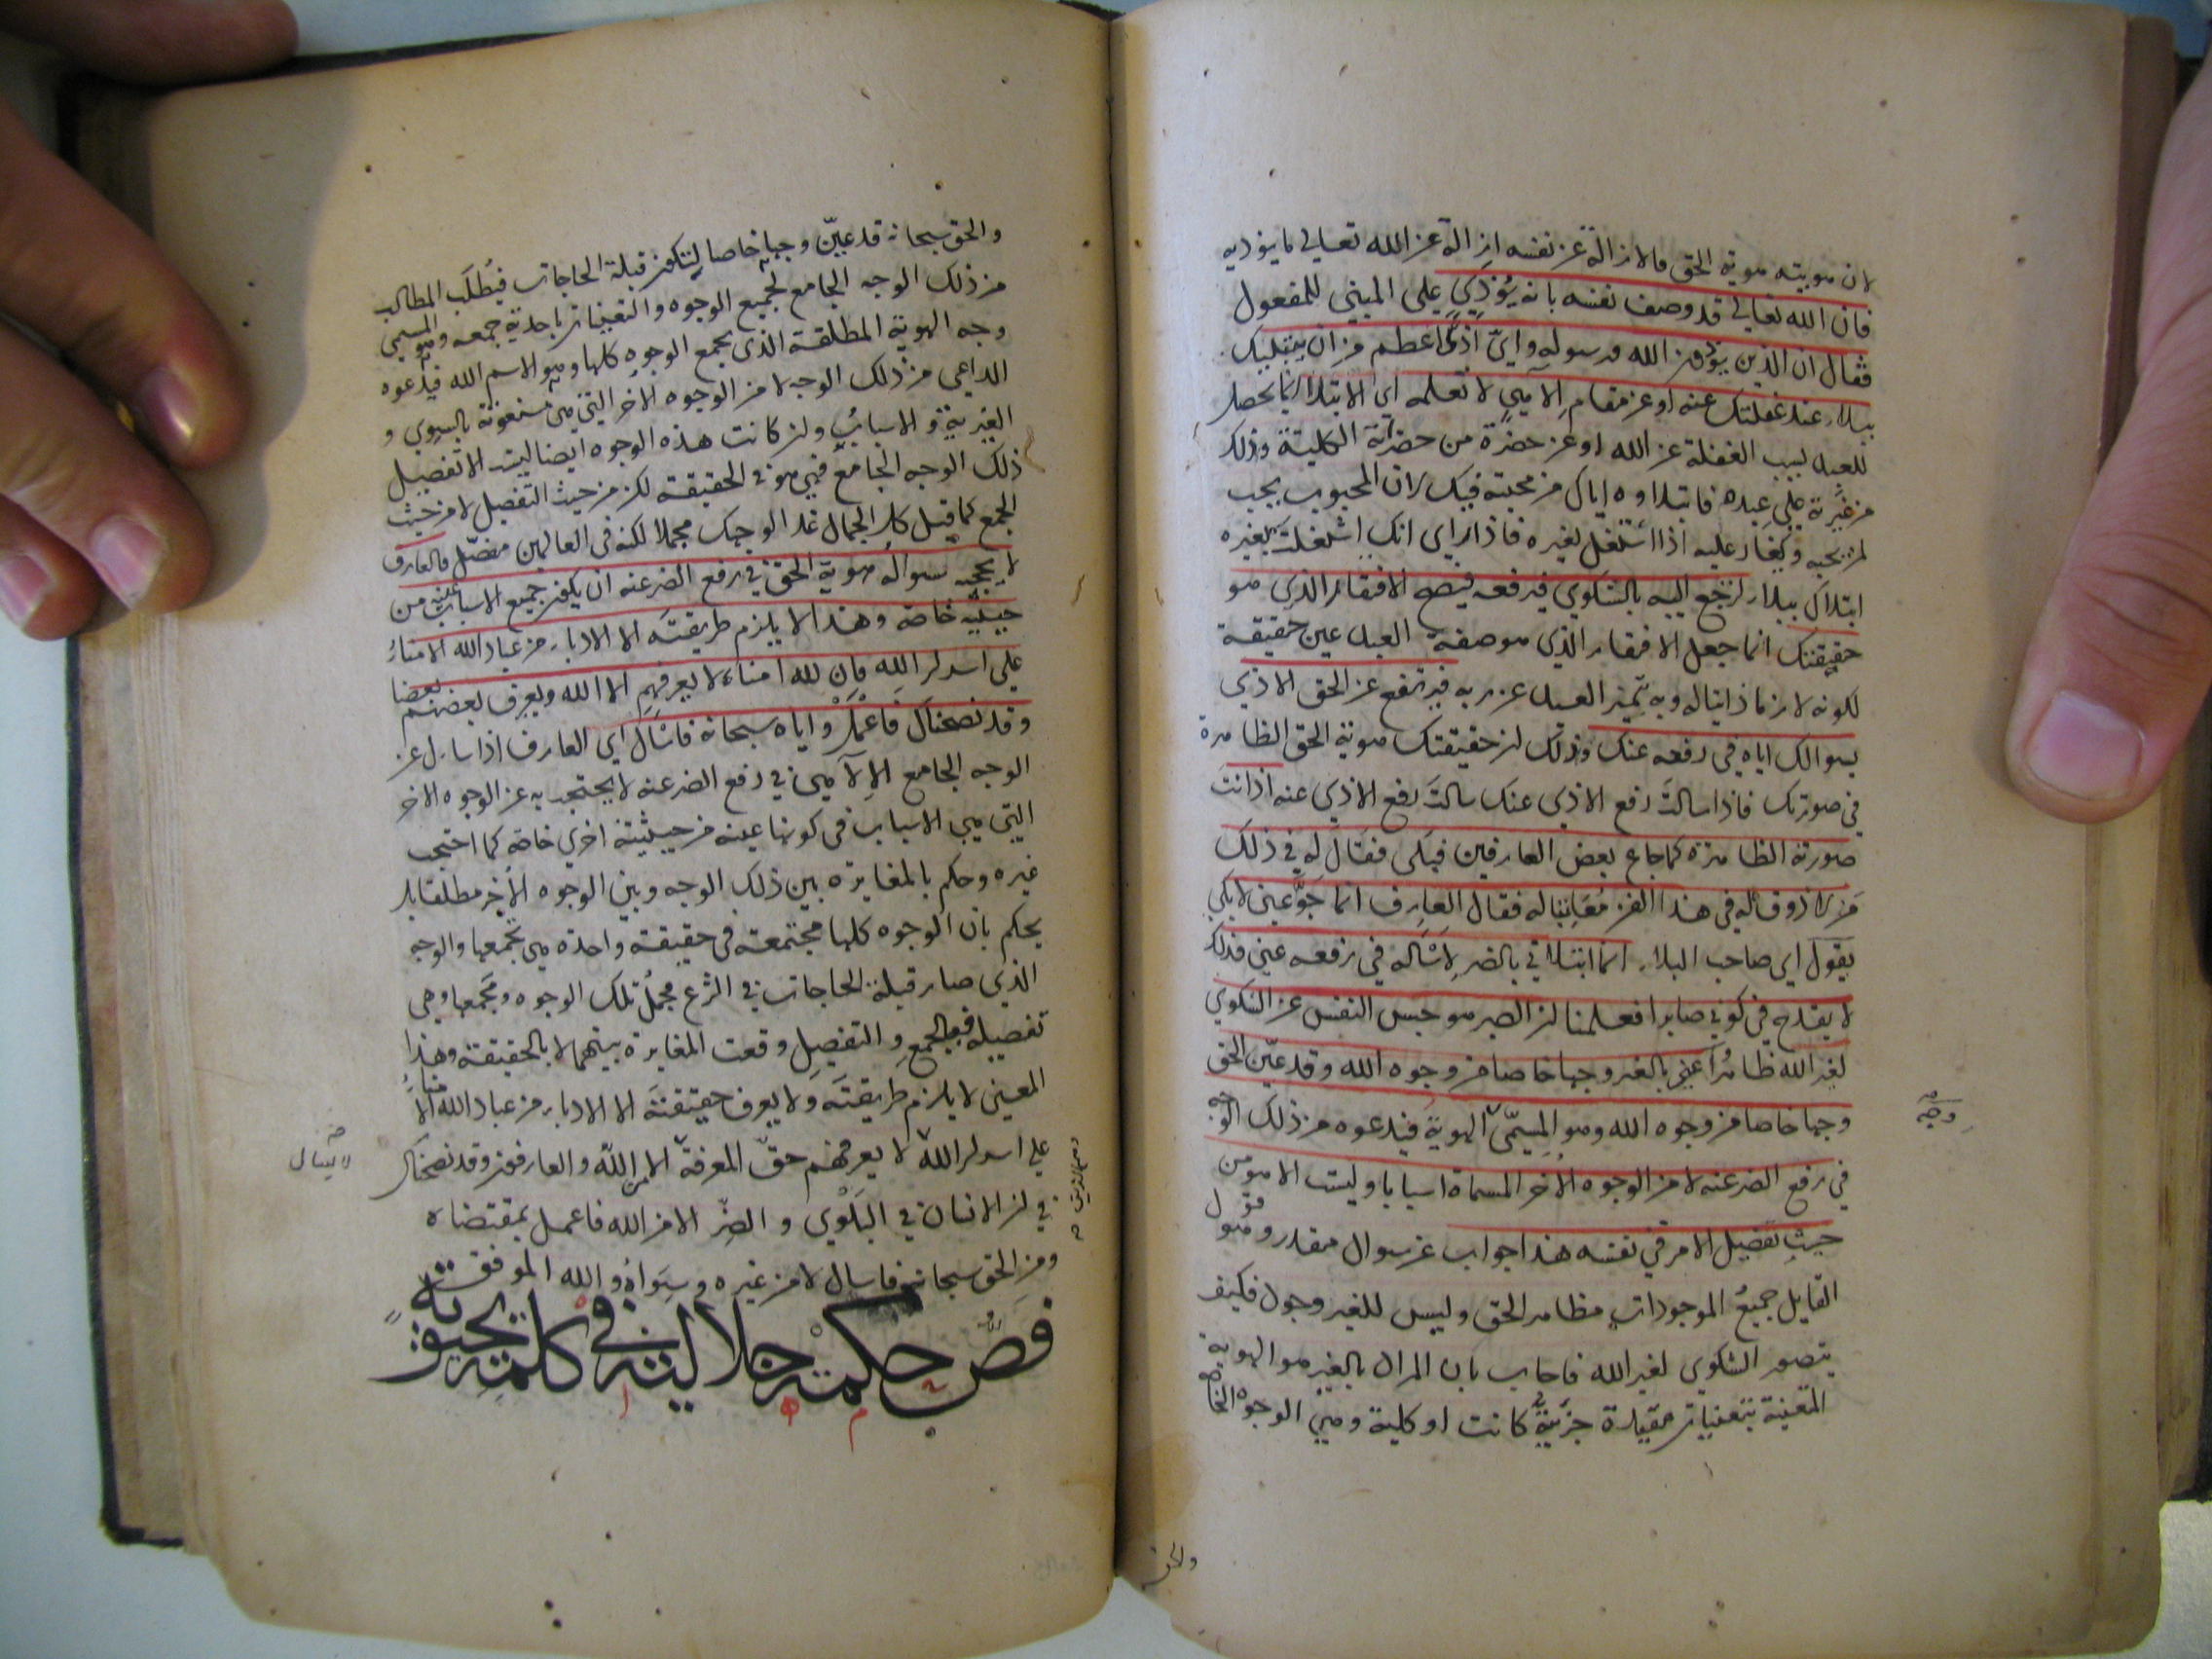 لان هويته هوية الحق فالازالة عن نفسه ازالة عن الله تعالى ما يؤذيه
فان الله تعالى قد وصف نفسه بانه يؤذي على المبني للمفعول
فقال ان الذين يؤذون الله ورسوله واي اذى اعظم من ان يبتليك
ببلاء عند غفلتك عنه او عن مقام الاهي لا تعلمه اي الابتلا انما يحصل
للعبد لسبب الغفلة عن الله او عن حضرة من حضراته الكلية وذلك
من غيرته على عبده فابتلاوه اياك من محبته فيك لان المحبوب يحب
لمن يحبه ويغار عليه اذا اشتغل لغيره فاذا راى انك اشتغلت بغيره
ابتلاك ببلاء لترجع اليه بالشكوى فيرفعه فيصح الافتقار الذي هو
حقيقتك انما جعل الافتقار الذي هو صفة العبد عين حقيقة
لكونه لازما ذاتيا له وبه يتميز العبد عن ربه فيرتفع عن الحق الاذى
بسوالك اياه في رفعه عنك وذلك لان حقيقتك هوية الحق الظاهرة
في صورتك فاذا سالت رفع الاذى عنك سالت رفع الاذى عنه اذ انت
صورته الظاهرة كما جاع بعض العارفين فبكى فقال له في ذلك
من لا ذوق له في هذا الفن معاتبا له فقال العارف انما جوعني لابكي
يقول اي صاحب البلاء انما ابتلاني بالضر لاساله في رفعه عني وذلك
لا يقدح في كوني صابرا فعلمنا ان الصبر هو حبس النفس عن الشكوى
لغير الله ظاهرا عني بالغير وجها خاصا من وجوه الله وقد عين الحق
وجها خاصا من وجوه الله وهو المسمى الهوية فيدعوه من ذلك الوجه
وجه
في رفع الضر عنه لا من الوجوه الاخر المسماة اسبابا وليست الا هو من
حيث تفصيل الامر في نفسه هذا جواب عن سوال مقدر وهو
القايل جميع الموجودات مظاهر الحق وليس للغير وجود فكيف
يتصور الشكوى لغير الله فاجاب بان المراد بالغير هو الهوية
المتعينة بتعينات مقيدة جزئية كانت او كلية وهي الوجوه الخاصة
والحق
والحق سبحانه قد عين وجها خاصا لتكون قبلة الحاجات فيطلب المطالب
من ذلك الوجه الجامع لجميع الوجوه والتعينات باحدية جمعه وهو المسمى
وجه الهوية المطلقة الذي يجمع الوجوه كلها وهو الاسم الله فيدعوه
الداعي من ذلك الوجه لا من الوجوه الاخر التي هي منعوتة بالسوى و
الغيرية والاسباب ولن كانت هذه الوجوه ايضا ليست الا تفصيل
ذلك الوجه الجامع فهي هو في الحقيقة لكن من حيث التفصيل لا من حيث
الجمع كما قيل كل الجمال غدا لوجهك مجملا لكنه في العالمين مفصل فالعارف
لا يحجبه سواله هوية الحق في رفع الضر عنه ان يكون جميع الاسباب عينه من
حيثية خاصة وهذا لا يلزم طريقته الا الادباء من عباد الله الامناء
على اسرار الله فان لله امناء لا يعرفهم الا الله ويعرف بعضهم بعضا
وقد نصحناك فاعمل واياه سبحانه فاسال اي العارف اذا سال عن
الوجه الجامع الالاهي في رفع الضر عنه لا يحتجب به عن الوجوه الاخر
التي هي الاسباب في كونها عينه من حيثية اخرى خاصة كما احتجب
غيره وحكم بالمغايرة بين ذلك الوجه وبين الوجوه الاخر مطلقا بل
يحكم بان الوجوه كلها مجتمعة في حقيقة واحدة هي تجمعها والوجه
الذي صار قبلة الحاجات في الشرع مجمل تلك الوجوه ومجمعها وهي
تفصيله فبالجمع والتفصيل وقعت المغايرة بينهما لا بالحقيقة وهذا
المعنى لا يلزم طريقته ولا يعرف حقيقته الا الادباء من عباد الله الامناء
على اسرار الله لا يعرفهم حق المعرفة الا الله والعارفون وقد نصحناك
لا يسال
في ان الانسان في البلوى والضر الا من الله فاعمل بمقتضاه
ومن الحق سبحانه فاسال لا من غيره وسواه والله الموفق
فص حكمة جلالية في كلمة يحيوية